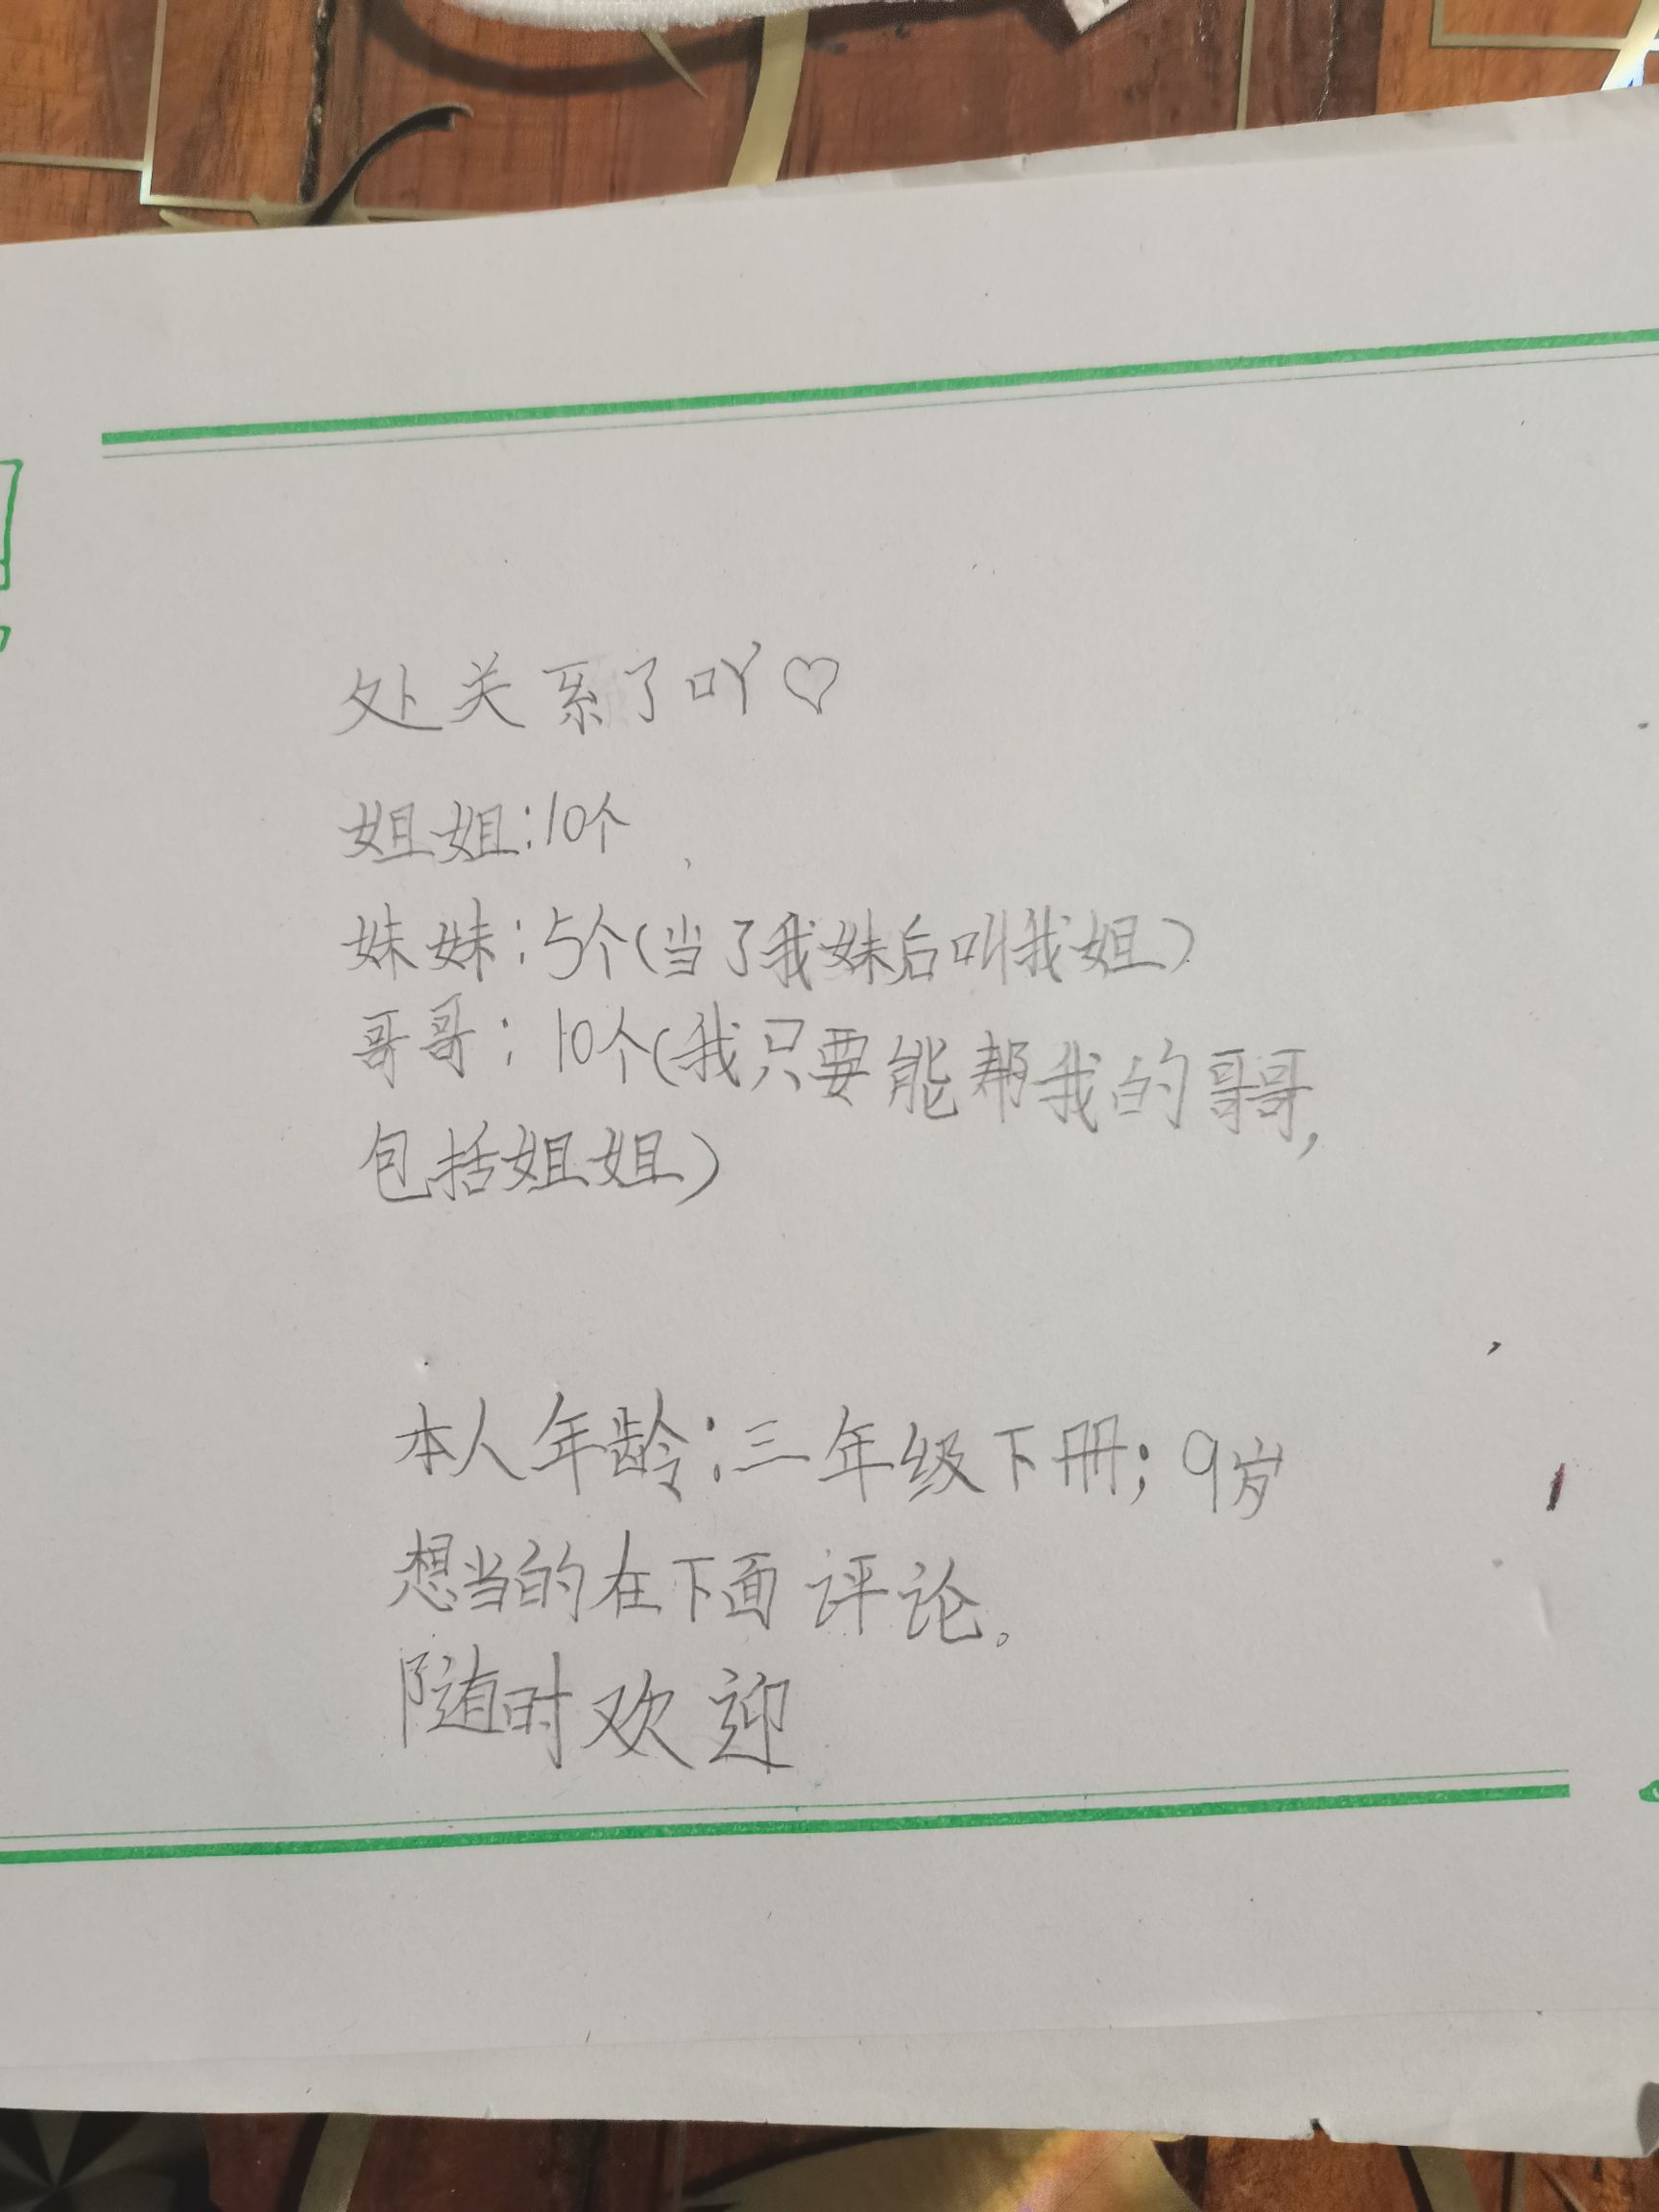 处关系了吖♡
姐姐:10个
妹妹:5个(当了我妹后叫我姐)
哥哥:10个(我只要能帮我的哥哥,
包括姐姐)
本人年龄:三年级下册;9岁
想当的在下面评论。
随时欢迎